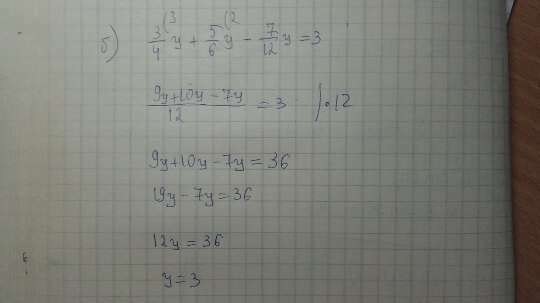 б) 3/4 (3 y + 5/6 (2 y - 7/12 y = 3
9y+10y-7y/12 = 3 |·12
9y+10y-7y=36
19y-7y=36
12y=36
y=3